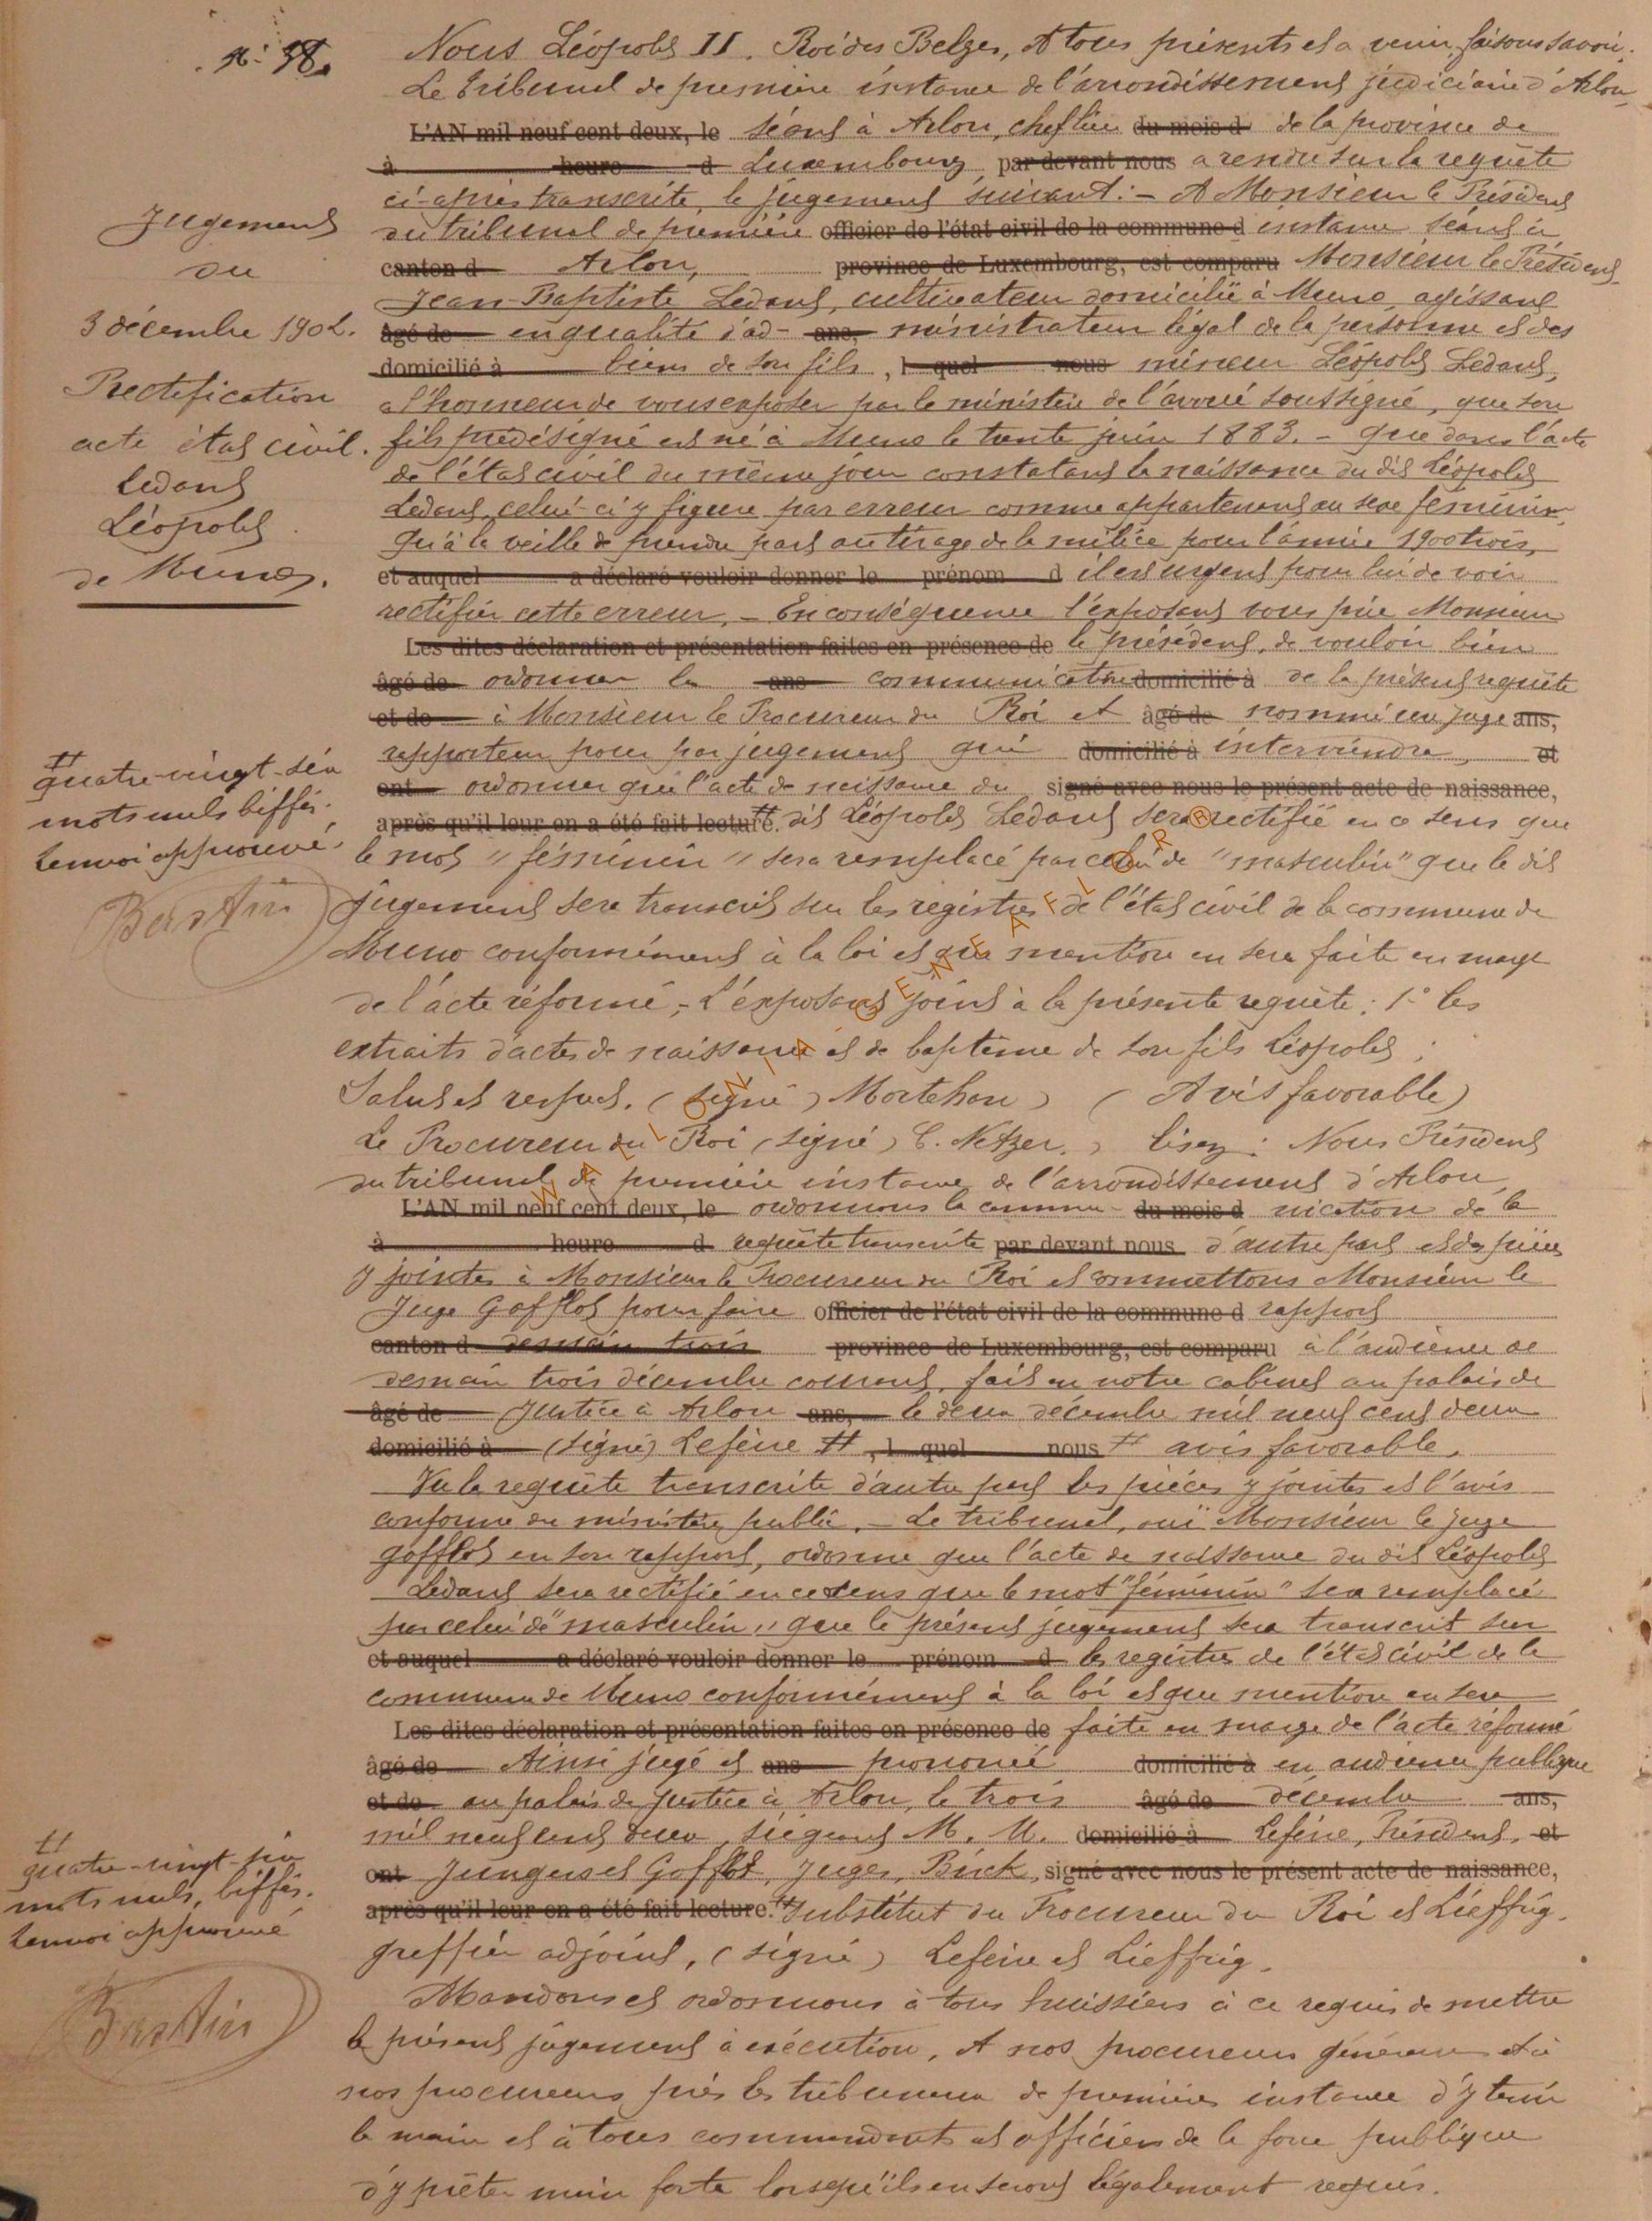 N° 38.
Nous Léopold II. Roi des Belges, A tous présents et a venir faisons savoir.
Le tribunal de première instance de l'arrondissement judiciaire d'Arlon
L'AN mil neuf cent deux, le séant à Arlon, chef lieu du mois d de la province de
à heure d Luxembourg, par devant nous a rendu sur la requête
ci-après transcrite, le jugement suivant : - A Monsieur le Président
Jugement
du tribunal de première officier de l'état civil de la commune d instance séant à
du
canton d Arlon, province de Luxembourg, est comparu Monsieur le Président
Jean-Baptiste Ledant, cultivateur domicilié à Muno, agissant
3 décembre 1902.
âgé de en qualité d'ad- ans, ministrateur légal de la personne et des
domicilié à biens de son fils, l quel nous mineur Léopold Ledant,
Rectification
a l'honneur de vous exposer par le ministère de l'avoué soussigné, que son
acte état civil.
fils prédésigné est né à Muno le trente juin 1883. - que dans l'acte
de l'état civil du même jour constatant la naissance du dit Léopold
Ledant
Ledant, celui-ci y figure par erreur comme appartenant au sexe féminin,
Léopold
qu'à la veille de prendre part au tirage de la milice pour l'année 1900 trois,
de Muno.
et auquel a déclaré vouloir donner le prénom d il est urgent pour lui de voir
rectifier cette erreur. - En conséquence l'exposant vous prie Monsieur
Les dites déclaration et présentation faites en présence de le président, de vouloir bien
âgé de ordonner la ans communication domicilié à de la présent requête
et de à Monsieur le Procureur du Roi et âgé de nommé un juge ans,
rapporteur pour par jugement qui domicilié à interviendra, et
ont ordonner que l'acte de naissance du signé avec nous le présent acte de naissance,
après qu'il leur en a été fait lecture. # dit Léopold Ledant sera rectifié en ce sens que
# quatre-vingt-six
mots nuls biffés.
Renvoi approuvé.
Bastin
le mot "féminin" sera remplacé par celui de "masculin" que le dit
jugement sera transcrit sur les registres de l'état civil de la commune de
Muno conformément à la loi et que mention en sera faite en marge
de l'acte réformé, - L'exposant joint à la présente requête : 1° les
extraits d'actes de naissance et de baptême de son fils Léopold ;
Salut et respect. (signé) Mortehan) (Avis favorable)
Le Procureur du Roi (signé) C. Netzer.) lisez : Nous Président
du tribunal de première instance de l'arrondissement d'Arlon,
L'AN mil neuf cent deux, le ordonnons la commu- du mois d nication de la
à heure d requête transcrite par devant nous d'autre part et des pièces
y jointes à Monsieur le Procureur du Roi et commettons Monsieur le
Juge Gofflot pour faire officier de l'état civil de la commune d rapport
canton d demain trois province de Luxembourg, est comparu à l'audience de
demain trois décembre courant, fait en notre cabinet au palais de
âgé de Justice à Arlon ans, le deux décembre mil neuf cent deux
domicilié à (signé) Lefène #, l quel nous # avis favorable.
Vu la requête transcrite d'autre part les pièces y jointes et l'avis
conforme du ministère public. - Le tribunal, ouï Monsieur le juge
Gofflot en son rapport, ordonne que l'acte de naissance du dit Léopold
Ledant sera rectifié en ce sens que le mot "féminin" sera remplacé
par celui de "masculin", que le présent jugement sera transcrit sur
et auquel a déclaré vouloir donner le prénom d les registres de l'état civil de la
commune de Muno conformément à la loi et que mention en sera
Les dites déclaration et présentation faites en présence de faite en marge de l'acte réformé
âgé de Ainsi jugé et ans prononcé domicilié à en audience publique
et de au palais de justice à Arlon, le trois âgé de décembre ans,
mil neuf cent deux, siégeant M. M. domicilié à Lefène, Président, et
ont Jungers et Gofflot, Juges, Birck, signé avec nous le présent acte de naissance,
après qu'il leur en a été fait lecture. # Substitut du Procureur du Roi et Lieffrig,
# quatre-vingt-six
mots nuls, biffés.
Renvoi approuvé
Bastin
greffier adjoint, (signé) Lefène et Lieffrig.
Mandons et ordonnons à tous huissiers à ce requis de mettre
le présent jugement à exécution, A nos procureurs généraux et à
nos procureurs près les tribunaux de première instance d'y tenir
la main et à tous commandants et officiers de la force publique
d'y prêter main forte lorsqu'ils en seront légalement requis.